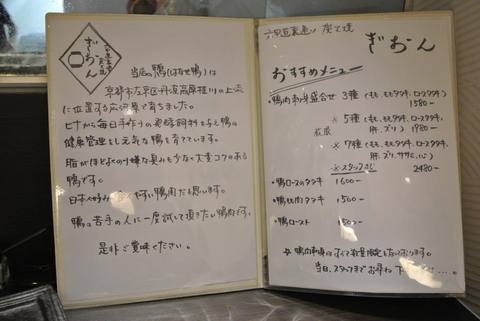 ぎおん
当店の鴨(はなせ鴨)は
京都市左京区丹波高原桂川の上流
に位置する広河原で育ちました。
ヒナから毎日手作りの発酵飼料を与え鴨の
健康管理をし元気な鴨を育てています。
脂がほどよくのり嫌な臭みも少なく大変コクのある
鴨です。
日本人好みの やすい鴨肉だと思います。
鴨の苦手の人に一度試して頂きたい鴨肉です。
是非ご賞味ください。
ぎおん
おすすめメニュー
・鴨肉お造り盛合せ 3種(もも、ももタタキ、ロースタタキ)
1580-
※ 5種(もも、ももタタキ、ロースタタキ
肝、ズリ) 1980-
※ 7種(もも、ももタタキ、ロースタタキ
肝、ズリ、ササミ、ハツ)
2480-
・鴨ロースのタタキ 1600-
・鴨もも肉タタキ 1500-
・鴨ロースト
☆ 鴨肉料理はすべて数量限定となっております。
当日、スタッフまでお尋ね下